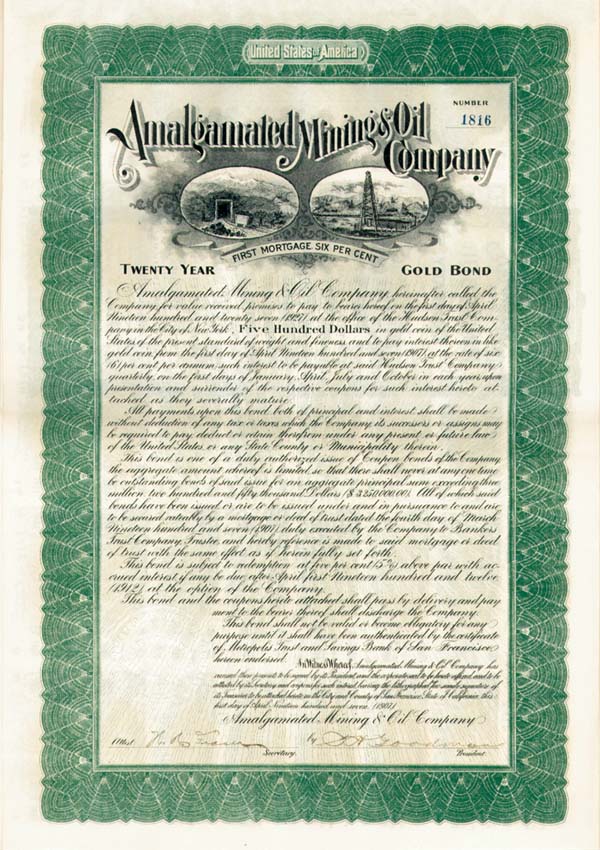 United States of America
NUMBER
1816
Amalgamated Mining & Oil
Company
FIRST MORTGAGE SIX PER CENT
TWENTY YEAR GOLD BOND
Amalgamated Mining & Oil Company hereinafter called the
Company for value received promises to pay to bearer hereof on the first day of April
Nineteen hundred and twenty seven (1927) at the office of the Hudson Trust Com-
pany in the City of New York, Five Hundred Dollars in gold coin of the United
States of the present standard of weight and fineness and to pay interest thereon in like
gold coin from the first day of April Nineteen hundred and seven (1907) at the rate of six
(6) per cent per annum, such interest to be payable at said Hudson Trust Company
quarterly on the first days of January, April, July and October in each year, upon
presentation and surrender of the respective coupons for such interest hereto at-
tached as they severally mature.
All payments upon this bond both of principal and interest shall be made
without deduction of any tax or taxes which the Company, its successors or assigns may
be required to pay deduct or retain therefrom under any present or future law
of the United States or any State County or Municipality therein.
This bond is one of a duly authorized issue of Coupon bonds of the Company
the aggregate amount whereof is limited so that there shall never at any one time
be outstanding bonds of said issue for an aggregate principal sum exceeding three
million two hundred and fifty thousand Dollars ($3,250,000.00). All of which said
bonds have been issued or are to be issued under and in pursuance to and are
to be secured ratically by a mortgage or deed of trust dated the fourth day of March
Nineteen hundred and seven (1907) duly executed by the Company to Bankers
Trust Company, Trustee, and hereby reference is made to said mortgage or deed
of trust with the same effect as if herein fully set forth.
This bond is subject to redemption at five per cent (5%) above par with ac-
crued interest if any be due after April first Nineteen hundred and twelve
(1912) at the option of the Company.
This bond and the coupons hereto attached shall pass by delivery and pay
ment to the bearer thereof shall discharge the Company.
This bond shall not be valid or become obligatory for any
purpose until it shall have been authenticated by the certificate
of Metropolis Trust and Savings Bank of San Francisco
hereon endorsed.
In Witness Whereof, Amalgamated Mining & Oil Company has
caused these presents to be signed by its President and the corporate seal to be hereto affixed, and to be
attested by its Secretary and coupons for such interest bearing the lithographed facsimile signature of
its Treasurer to be attached hereto in the City and County of San Francisco, State of California this
first day of April Nineteen hundred and seven. (1907)
Amalgamated Mining & Oil Company
Attest
Secretary. President.